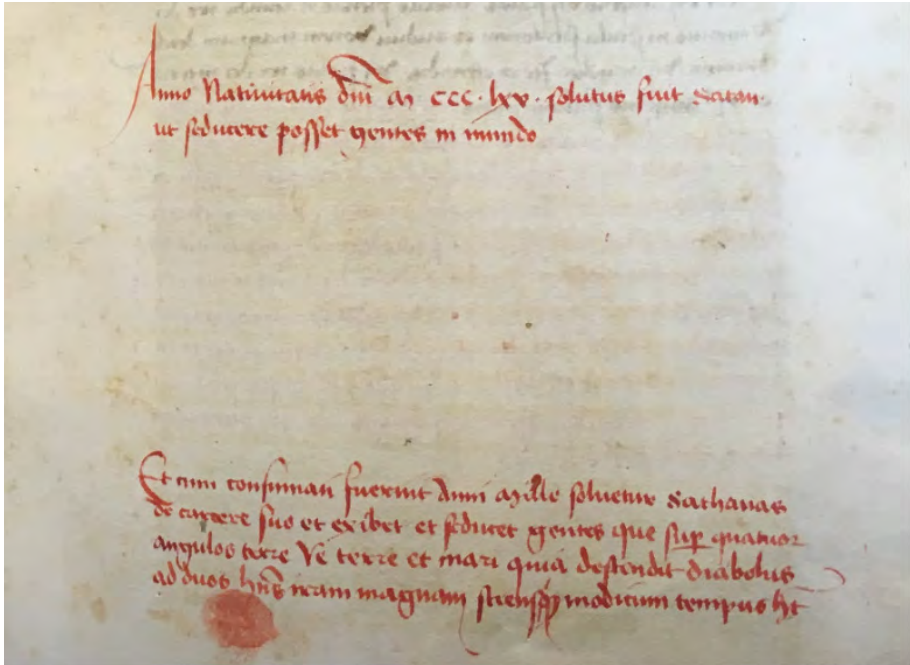 Anno Natiuitatis dni M ccc · lxv · solutus fuit Satan
ut seducere posset gentes in mundo
Et cum consumati fuerint Anni Mille soluetur Sathanas
de carcere suo et exibet et seducet gentes que sup quatuor
angulos terre Ve terre et mari quia descendit diabolus
ad duos hns iram magnam sciens modicum tempus ht